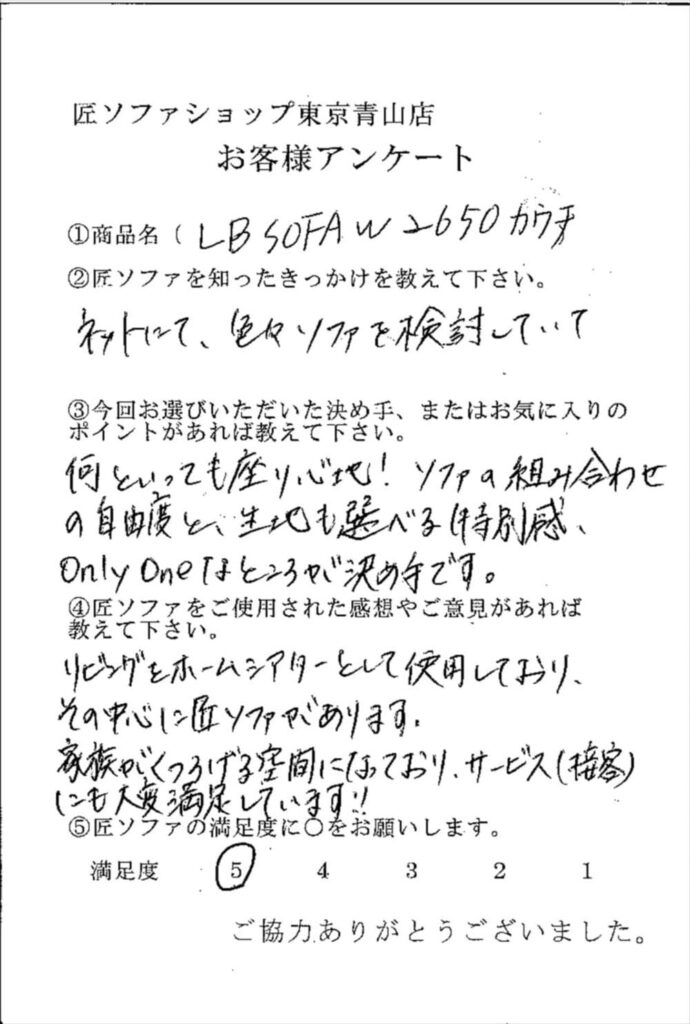 匠ソファショップ東京青山店
お客様アンケート
①商品名（ LB SOFA W 2650 カウチ
②匠ソファを知ったきっかけを教えて下さい。
ネットにて、色々ソファを検討していて
③今回お選びいただいた決め手、またはお気に入りの
ポイントがあれば教えて下さい。
何といっても座り心地！ソファの組み合わせ
の自由度と、生地も選べる特別感、
Only Oneなところが決め手です。
④匠ソファをご使用された感想やご意見があれば
教えて下さい。
リビングをホームシアターとして使用しており、
その中心に匠ソファがあります。
家族がくつろげる空間になっており、サービス(接客)
にも大変満足しています!!
⑤匠ソファの満足度に〇をお願いします。
満足度 5 4 3 2 1
ご協力ありがとうございました。